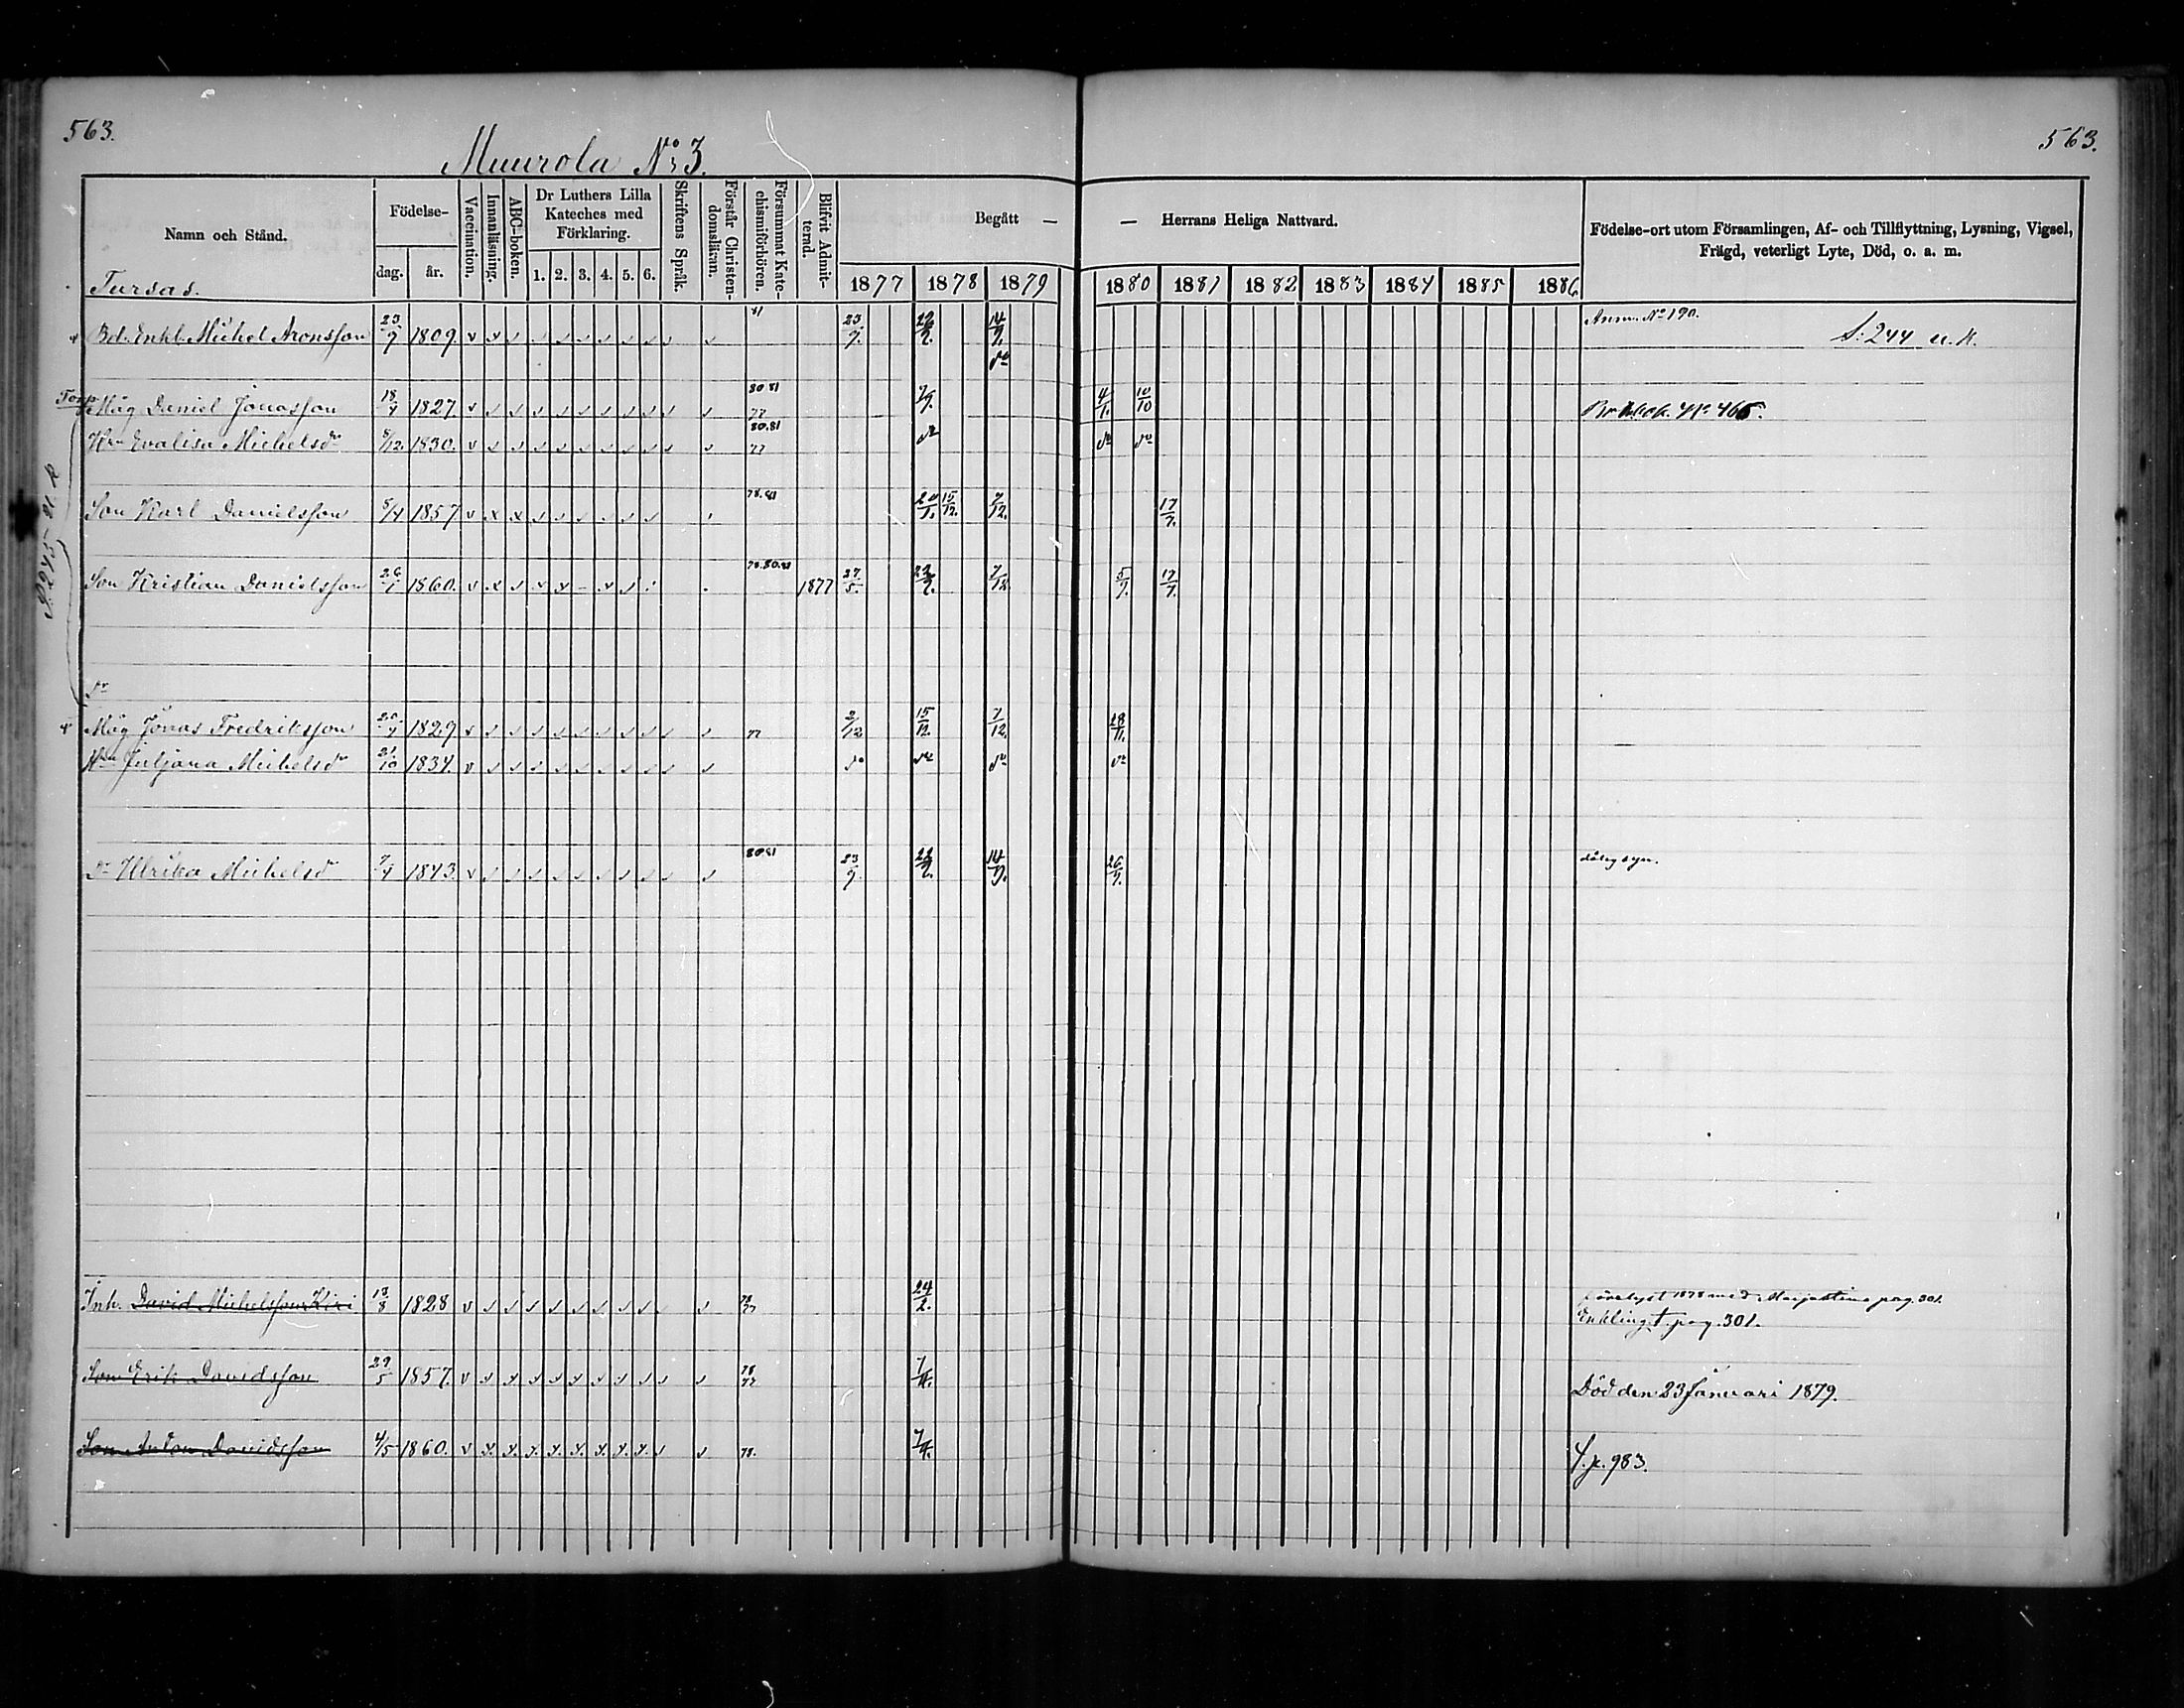 563.
563.
Muurola No 3.
Namn och Stånd.
Födelse-
dag.
år.
Vaccination.
Innanläsning.
ABC-boken.
Dr Luthers Lilla
Kateches med
Förklaring.
1. 2. 3. 4. 5. 6.
Skriftens Språk.
Förstår Christen-
domsläran.
Försummat Kate-
chismiförhören.
Blifvit Admit-
terad.
Begått —
— Herrans Heliga Nattvard.
1877 1878 1879 1880 1881 1882 1883 1884 1885 1886
Födelse-ort utom Församlingen, Af- och Tillflyttning, Lysning, Vigsel,
Frägd, veterligt Lyte, Död, o. a. m.
Tursas.
Bd. Enkl. Michel Aronsson 23/9 1809. 81 23/9. 22/9. 14/9. Anm. No 190. S. 244 u. K.
do
Torp. Måg Daniel Jonasson 18/4 1827. 80.81 77 7/9. 4/1. 10/10
Hu Evalisa Michelsdr 5/12. 1830. 80.81 77 do do do
Son Karl Danielsson 5/4 1857 78.81 20/1. 15/12. 7/12. 17/7.
Son Kristian Danielsson 26/1 1860. 78.80.81 1877 27/5. 22/9. 7/12. 5/9. 17/7.
S. 245 u. K
Dr
Måg Jonas Fredriksson 1829 77 2/12 15/12. 7/12. 28/11.
Hu Juljana Michelsdr 21/10 1834. do do do do
Dr Ulrika Michelsdr 7/4 1843. 80 81 23/9. 22/9. 14/9. 26/9. dålig syn.
Inh. David Michelsson Kiri 13/8 1828 78 77 24/2. 1878 med pag. 301.
Enkling † pag. 301.
Son Erik Davidsson 29/5 1857. 78 77 Död den 23 Januari 1879.
Son Anton Davidsson 4/5 1860. 78. p. 983.